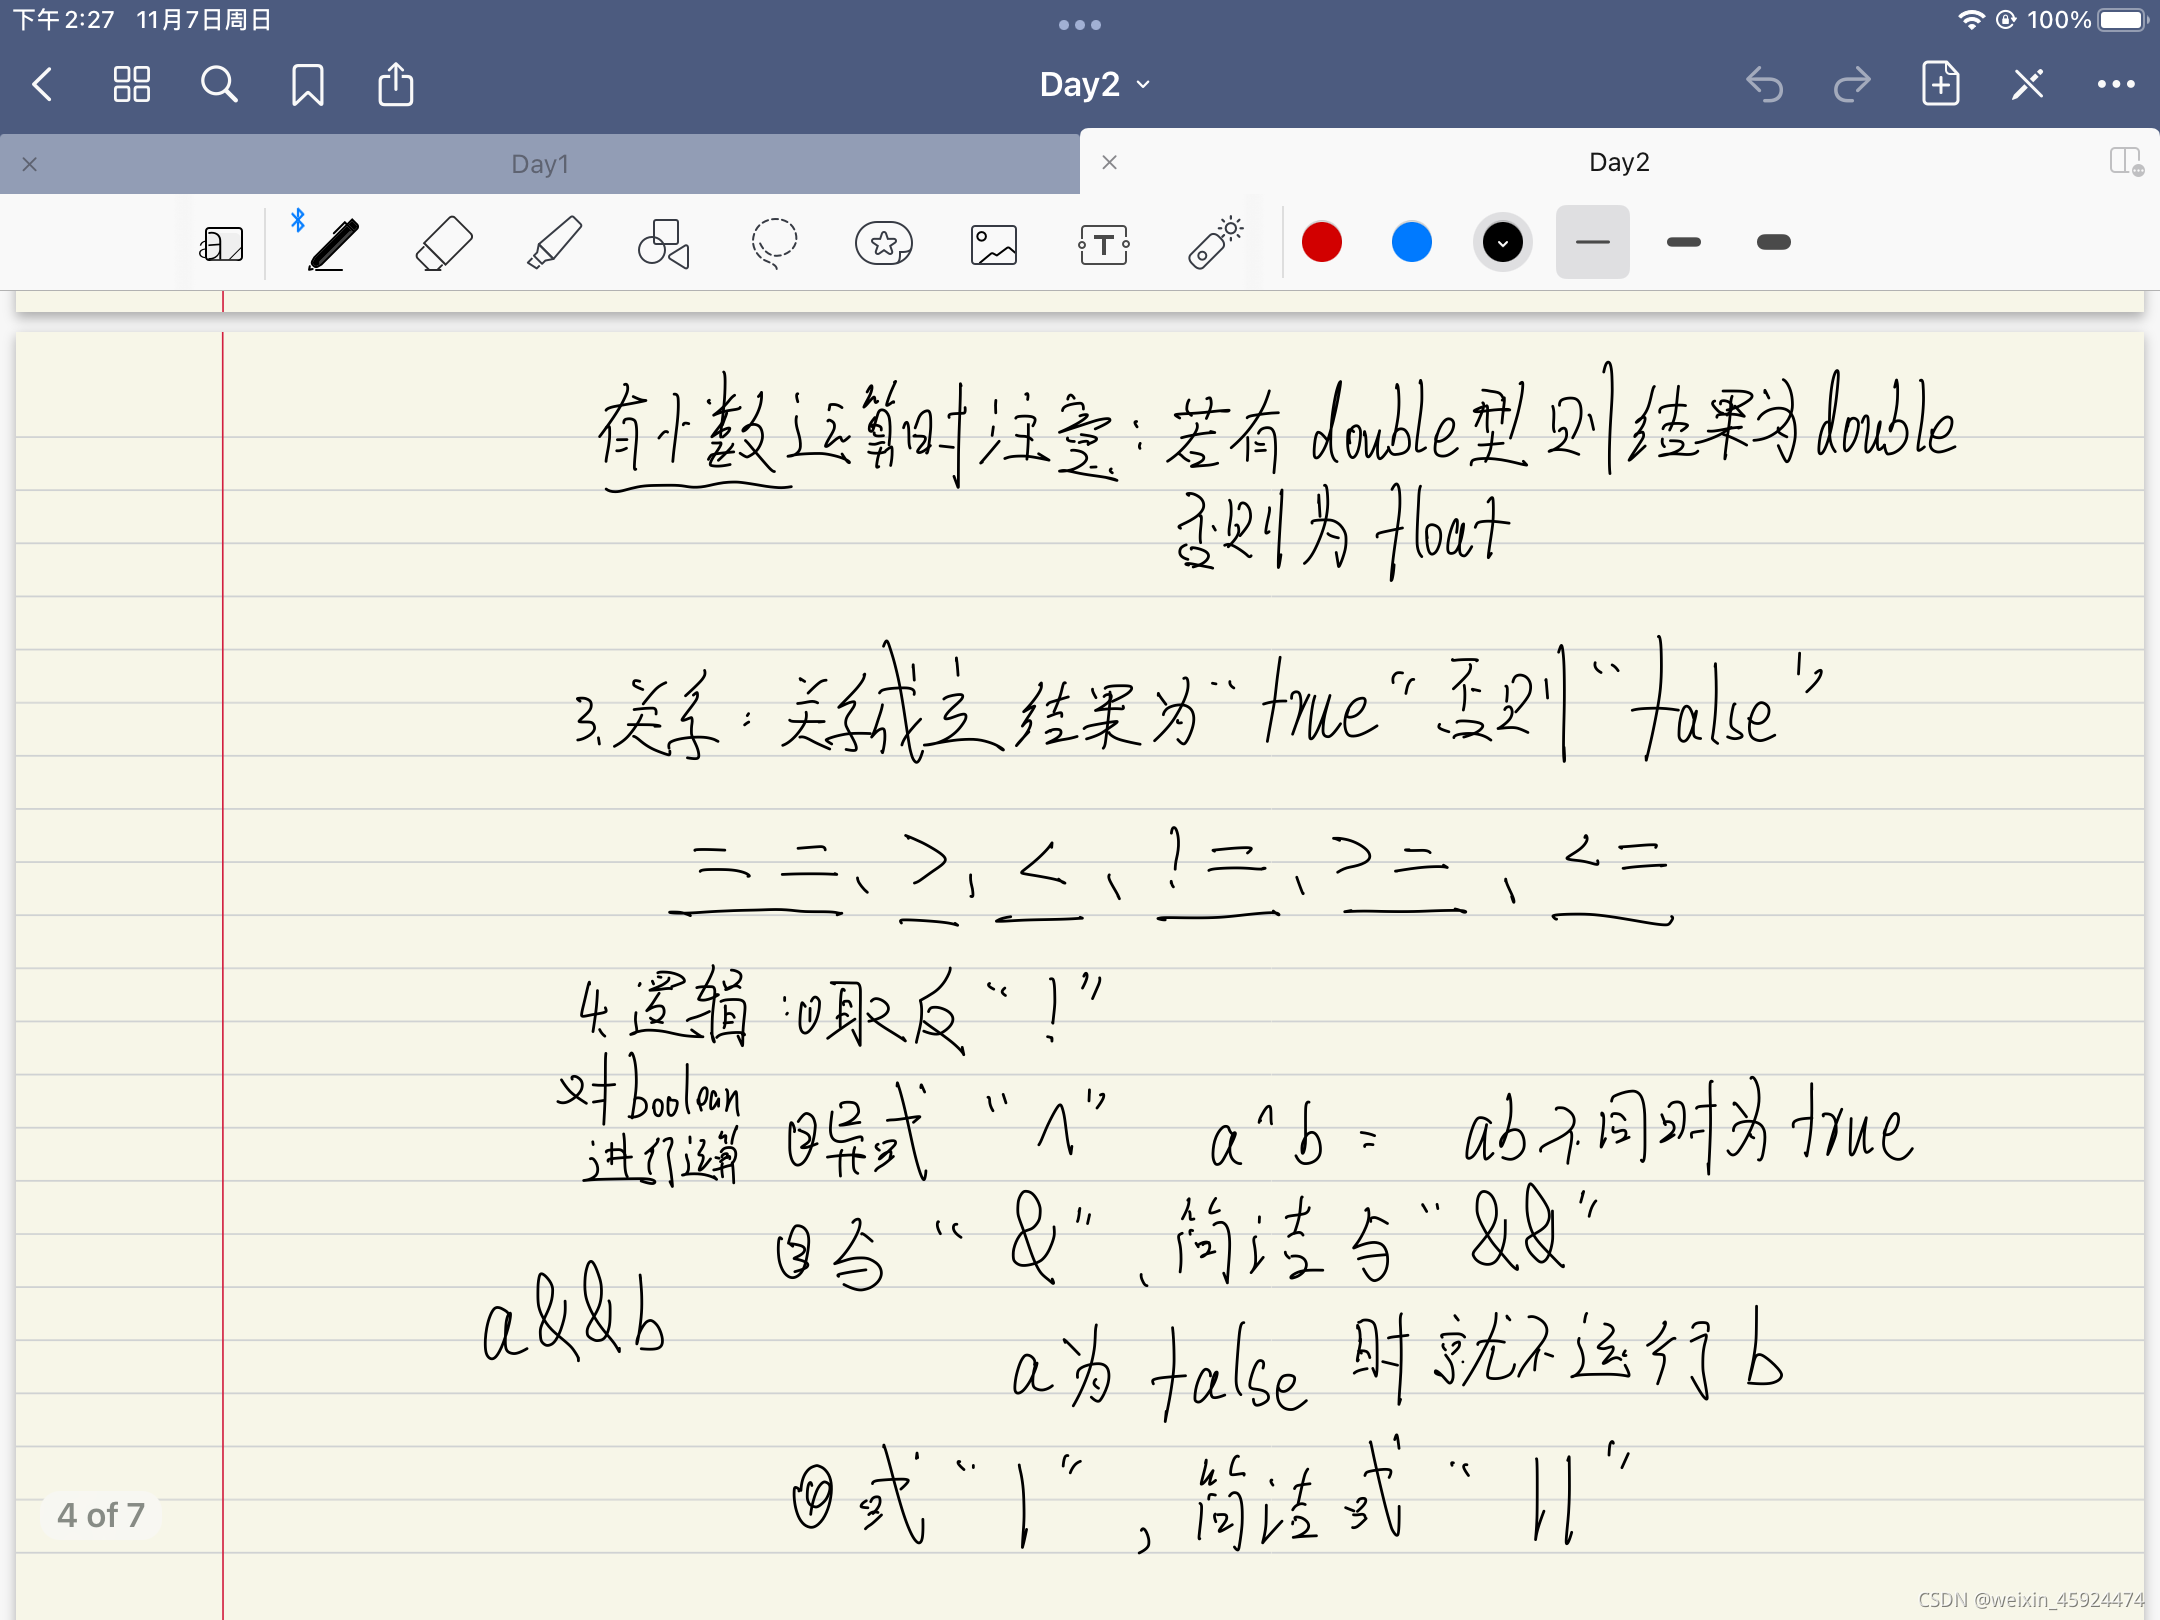 下午2:27 11月7日周日
100%
Day2
Day1
Day2
有小数运算时注意：若有double型则结果为double
否则为float
3.关系：关系成立 结果为“true“否则“false”
==、>、<、!=、>=、<=
4.逻辑：①取反“!”
对boolean
进行运算
②异或“^” a^b = ab不同时为true
③与“&”、简洁与“&&”
a&&b
a为false时就不运行b
④或“|“，简洁或“||”
4 of 7
CSDN @weixin_45924474